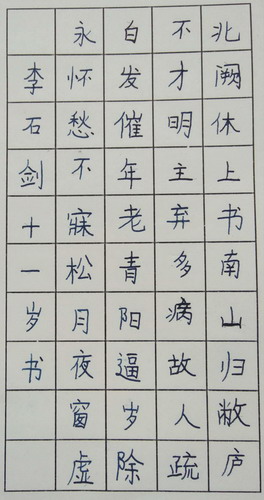 北阙休上书南山归敝庐
不才明主弃多病故人疏
白发催年老青阳逼岁除
永怀愁不寐松月夜窗虚
李石剑十一岁书